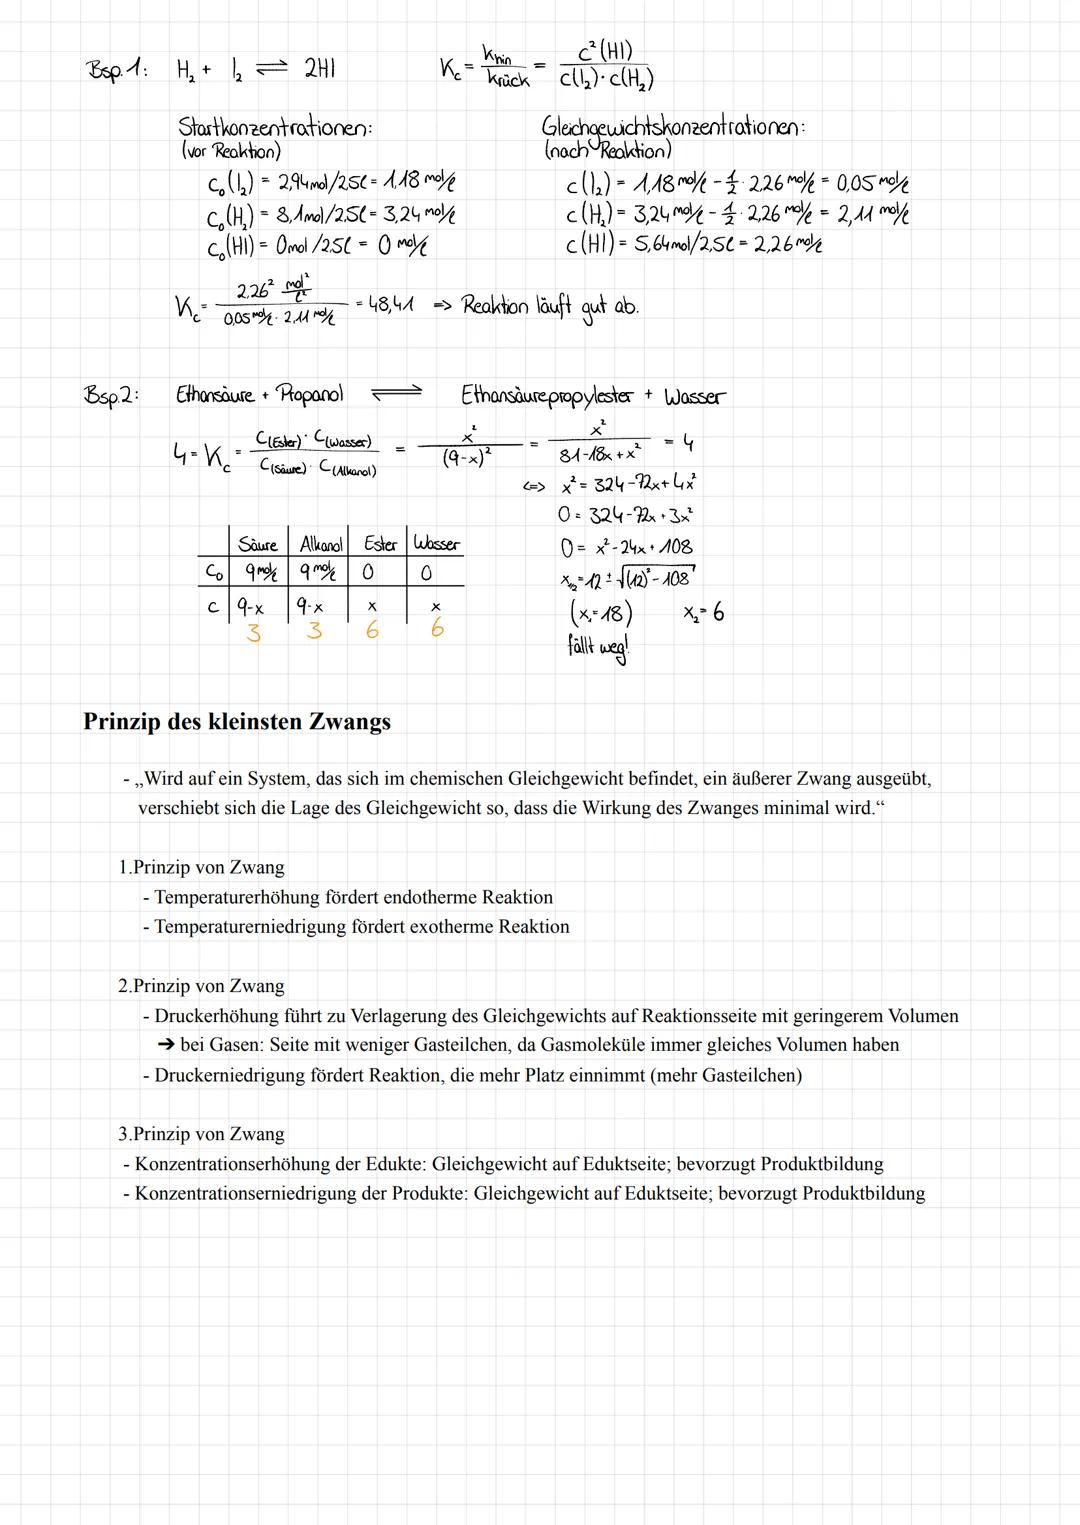 Bsp. 1: H₂ + I₂ ⇌ 2HI K_c = k_hin / k_rück = c²(HI) / c(I₂)·c(H₂)
Startkonzentrationen: Gleichgewichtskonzentrationen:
(vor Reaktion) (nach Reaktion)
c₀(I₂) = 2,94mol/2,5l = 1,18 mol/l c(I₂) = 1,18 mol/l - 1/2 · 2,26 mol/l = 0,05 mol/l
c₀(H₂) = 8,1mol/2,5l = 3,24 mol/l c(H₂) = 3,24 mol/l - 1/2 · 2,26 mol/l = 2,11 mol/l
c₀(HI) = 0mol/2,5l = 0 mol/l c(HI) = 5,64mol/2,5l = 2,26 mol/l
K_c = 2,26² mol²/l² / 0,05 mol/l · 2,11 mol/l = 48,41 => Reaktion läuft gut ab.
Bsp.2: Ethansäure + Propanol ⇌ Ethansäurepropylester + Wasser
4 = K_c = C(Ester) · C(Wasser) / C(Säure) · C(Alkanol) = x² / (9-x)² = x² / 81-18x+x² = 4
<=> x² = 324-72x+4x²
0 = 324-72x+3x²
0 = x²-24x+108
x₁,₂ = 12 ± √(12)²-108
(x₁=18) x₂=6
fällt weg!
Säure Alkanol Ester Wasser
C₀ 9 mol/l 9 mol/l 0 0
c 9-x 9-x x x
3 3 6 6
Prinzip des kleinsten Zwangs
- „Wird auf ein System, das sich im chemischen Gleichgewicht befindet, ein äußerer Zwang ausgeübt,
verschiebt sich die Lage des Gleichgewicht so, dass die Wirkung des Zwanges minimal wird.“
1.Prinzip von Zwang
- Temperaturerhöhung fördert endotherme Reaktion
- Temperaturerniedrigung fördert exotherme Reaktion
2.Prinzip von Zwang
- Druckerhöhung führt zu Verlagerung des Gleichgewichts auf Reaktionsseite mit geringerem Volumen
→ bei Gasen: Seite mit weniger Gasteilchen, da Gasmoleküle immer gleiches Volumen haben
- Druckerniedrigung fördert Reaktion, die mehr Platz einnimmt (mehr Gasteilchen)
3.Prinzip von Zwang
- Konzentrationserhöhung der Edukte: Gleichgewicht auf Eduktseite; bevorzugt Produktbildung
- Konzentrationserniedrigung der Produkte: Gleichgewicht auf Eduktseite; bevorzugt Produktbildung